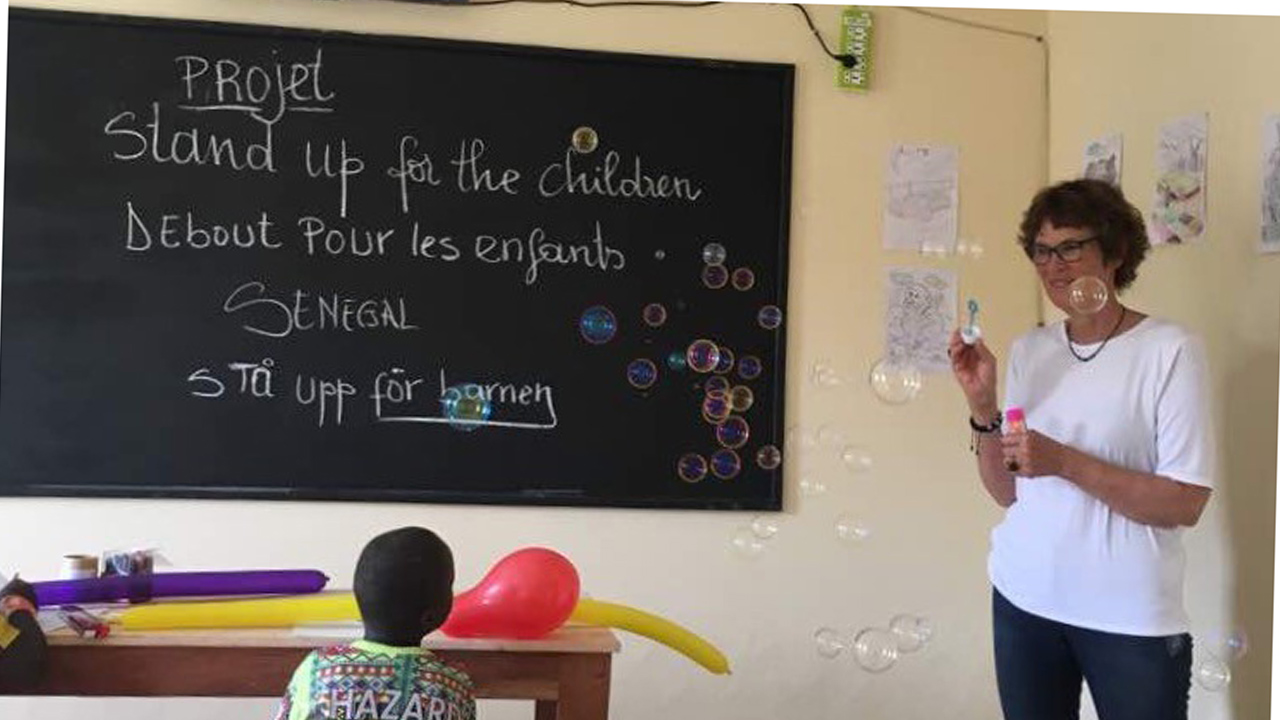 PROjet
Stand up for the children
DEbout Pour les enfants
SENEGAL
STÅ upp för barnen
HAZARD